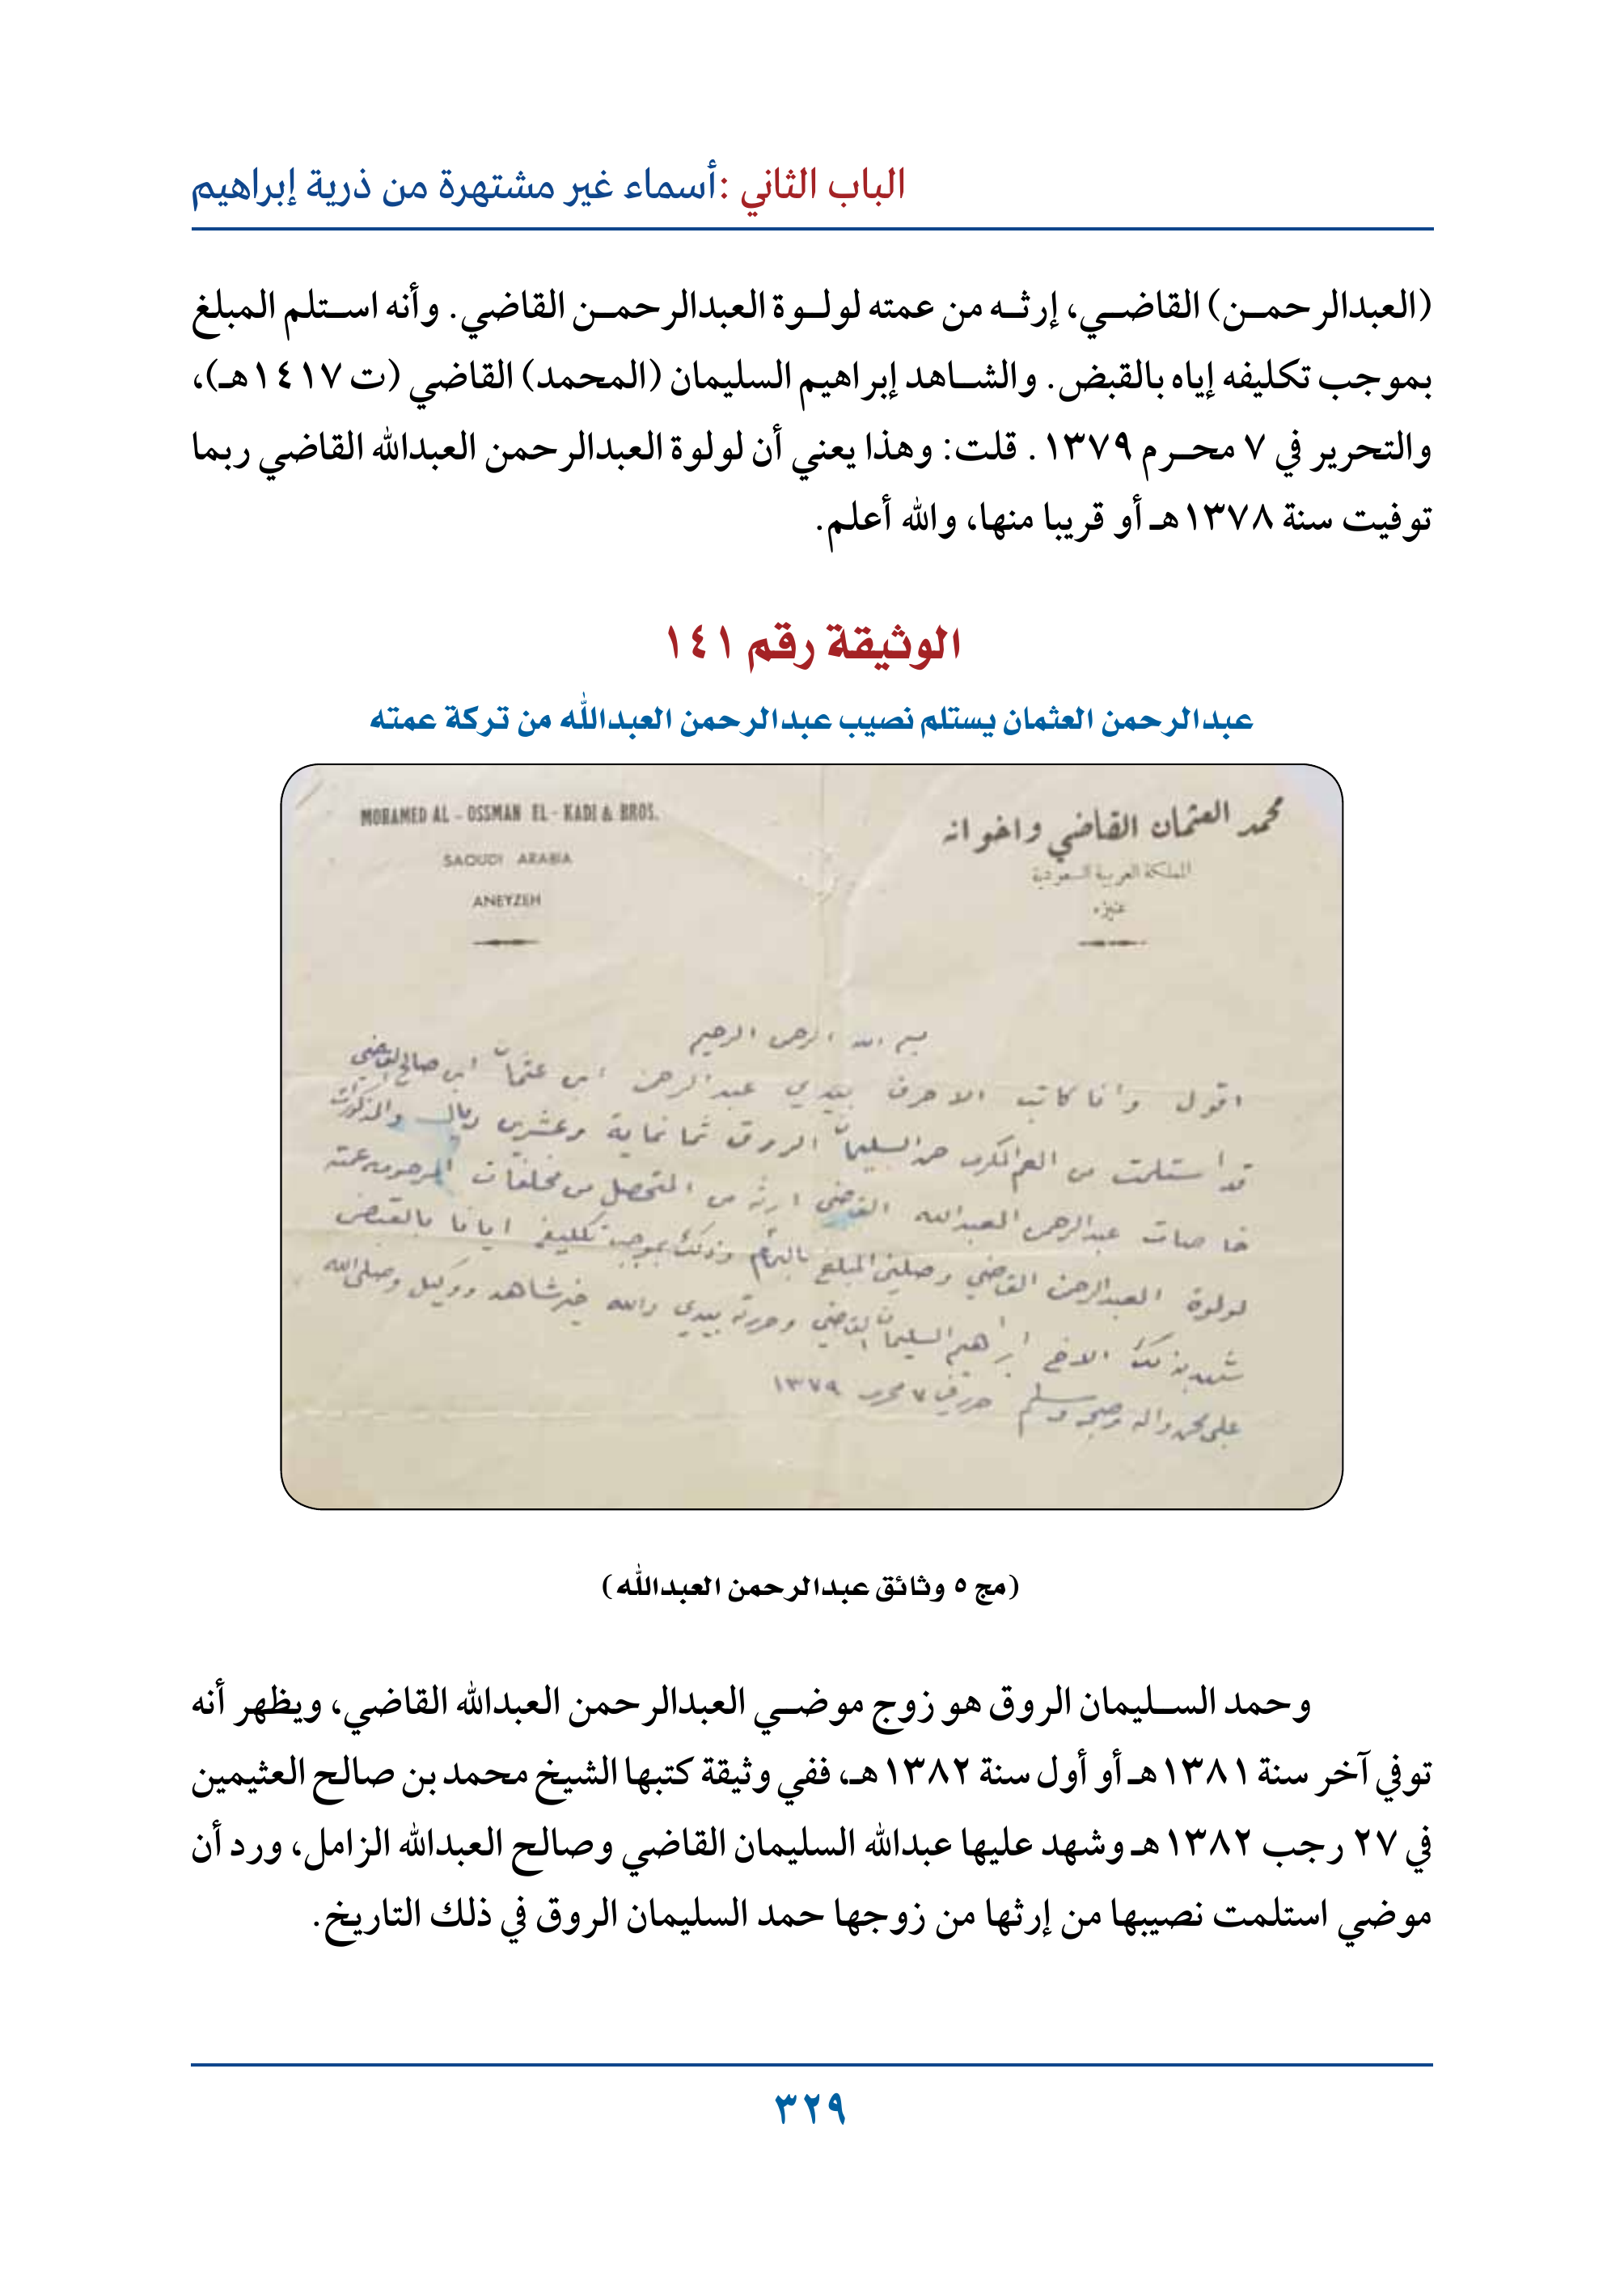 الباب الثاني :أسماء غير مشتهرة من ذرية إبراهيم
(العبدالرحمن) القاضي، إرثه من عمته لولوة العبدالرحمن القاضي. وأنه استلم المبلغ
بموجب تكليفه إياه بالقبض. والشاهد إبراهيم السليمان (المحمد) القاضي (ت ١٤١٧هـ)،
والتحرير في ٧ محرم ١٣٧٩. قلت: وهذا يعني أن لولوة العبدالرحمن العبدالله القاضي ربما
توفيت سنة ١٣٧٨هـ أو قريبا منها، والله أعلم.
الوثيقة رقم ١٤١
عبدالرحمن العثمان يستلم نصيب عبدالرحمن العبدالله من تركة عمته
محمد العثمان القاضي واخوانه
المملكة العربية السعودية
عنيزه
MOHAMED AL - OSSMAN EL - KADI & BROS.
SAOUDI ARABIA
ANEYZEH
بسم الله الرحمن الرحيم
اقول وانا كاتب الاحرف بيدي عبدالرحمن ابن عثمان ابن صالح القاضي
قد استلمت من العم المكرم حمد السليمان الروق ثمانماية وعشرين ريال والمذكورات
خاصات عبدالرحمن العبدالله القاضي ارثه من المتحصل من مخلفات المرحومه عمته
لولوة العبدالرحمن القاضي وصلني المبلغ بالتمام وذلك بموجب تكليفه ايانا بالقبض
شهد بذلك الاخ ابراهيم السليمان القاضي وحررته بيدي والله خير شاهد ووكيل وصلى الله
على محمد واله وصحبه وسلم حرر في ٧ محرم ١٣٧٩
(مج ٥ وثائق عبدالرحمن العبدالله)
وحمد السليمان الروق هو زوج موضي العبدالرحمن العبدالله القاضي، ويظهر أنه
توفي آخر سنة ١٣٨١هـ أو أول سنة ١٣٨٢هـ، ففي وثيقة كتبها الشيخ محمد بن صالح العثيمين
في ٢٧ رجب ١٣٨٢هـ وشهد عليها عبدالله السليمان القاضي وصالح العبدالله الزامل، ورد أن
موضي استلمت نصيبها من إرثها من زوجها حمد السليمان الروق في ذلك التاريخ.
٣٢٩